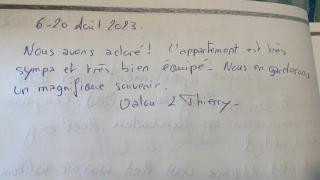 6-20 Août 2023.
Nous avons adoré! L'appartement est très
sympa et très bien équipé. Nous en garderons
un magnifique souvenir.
& Thierry-